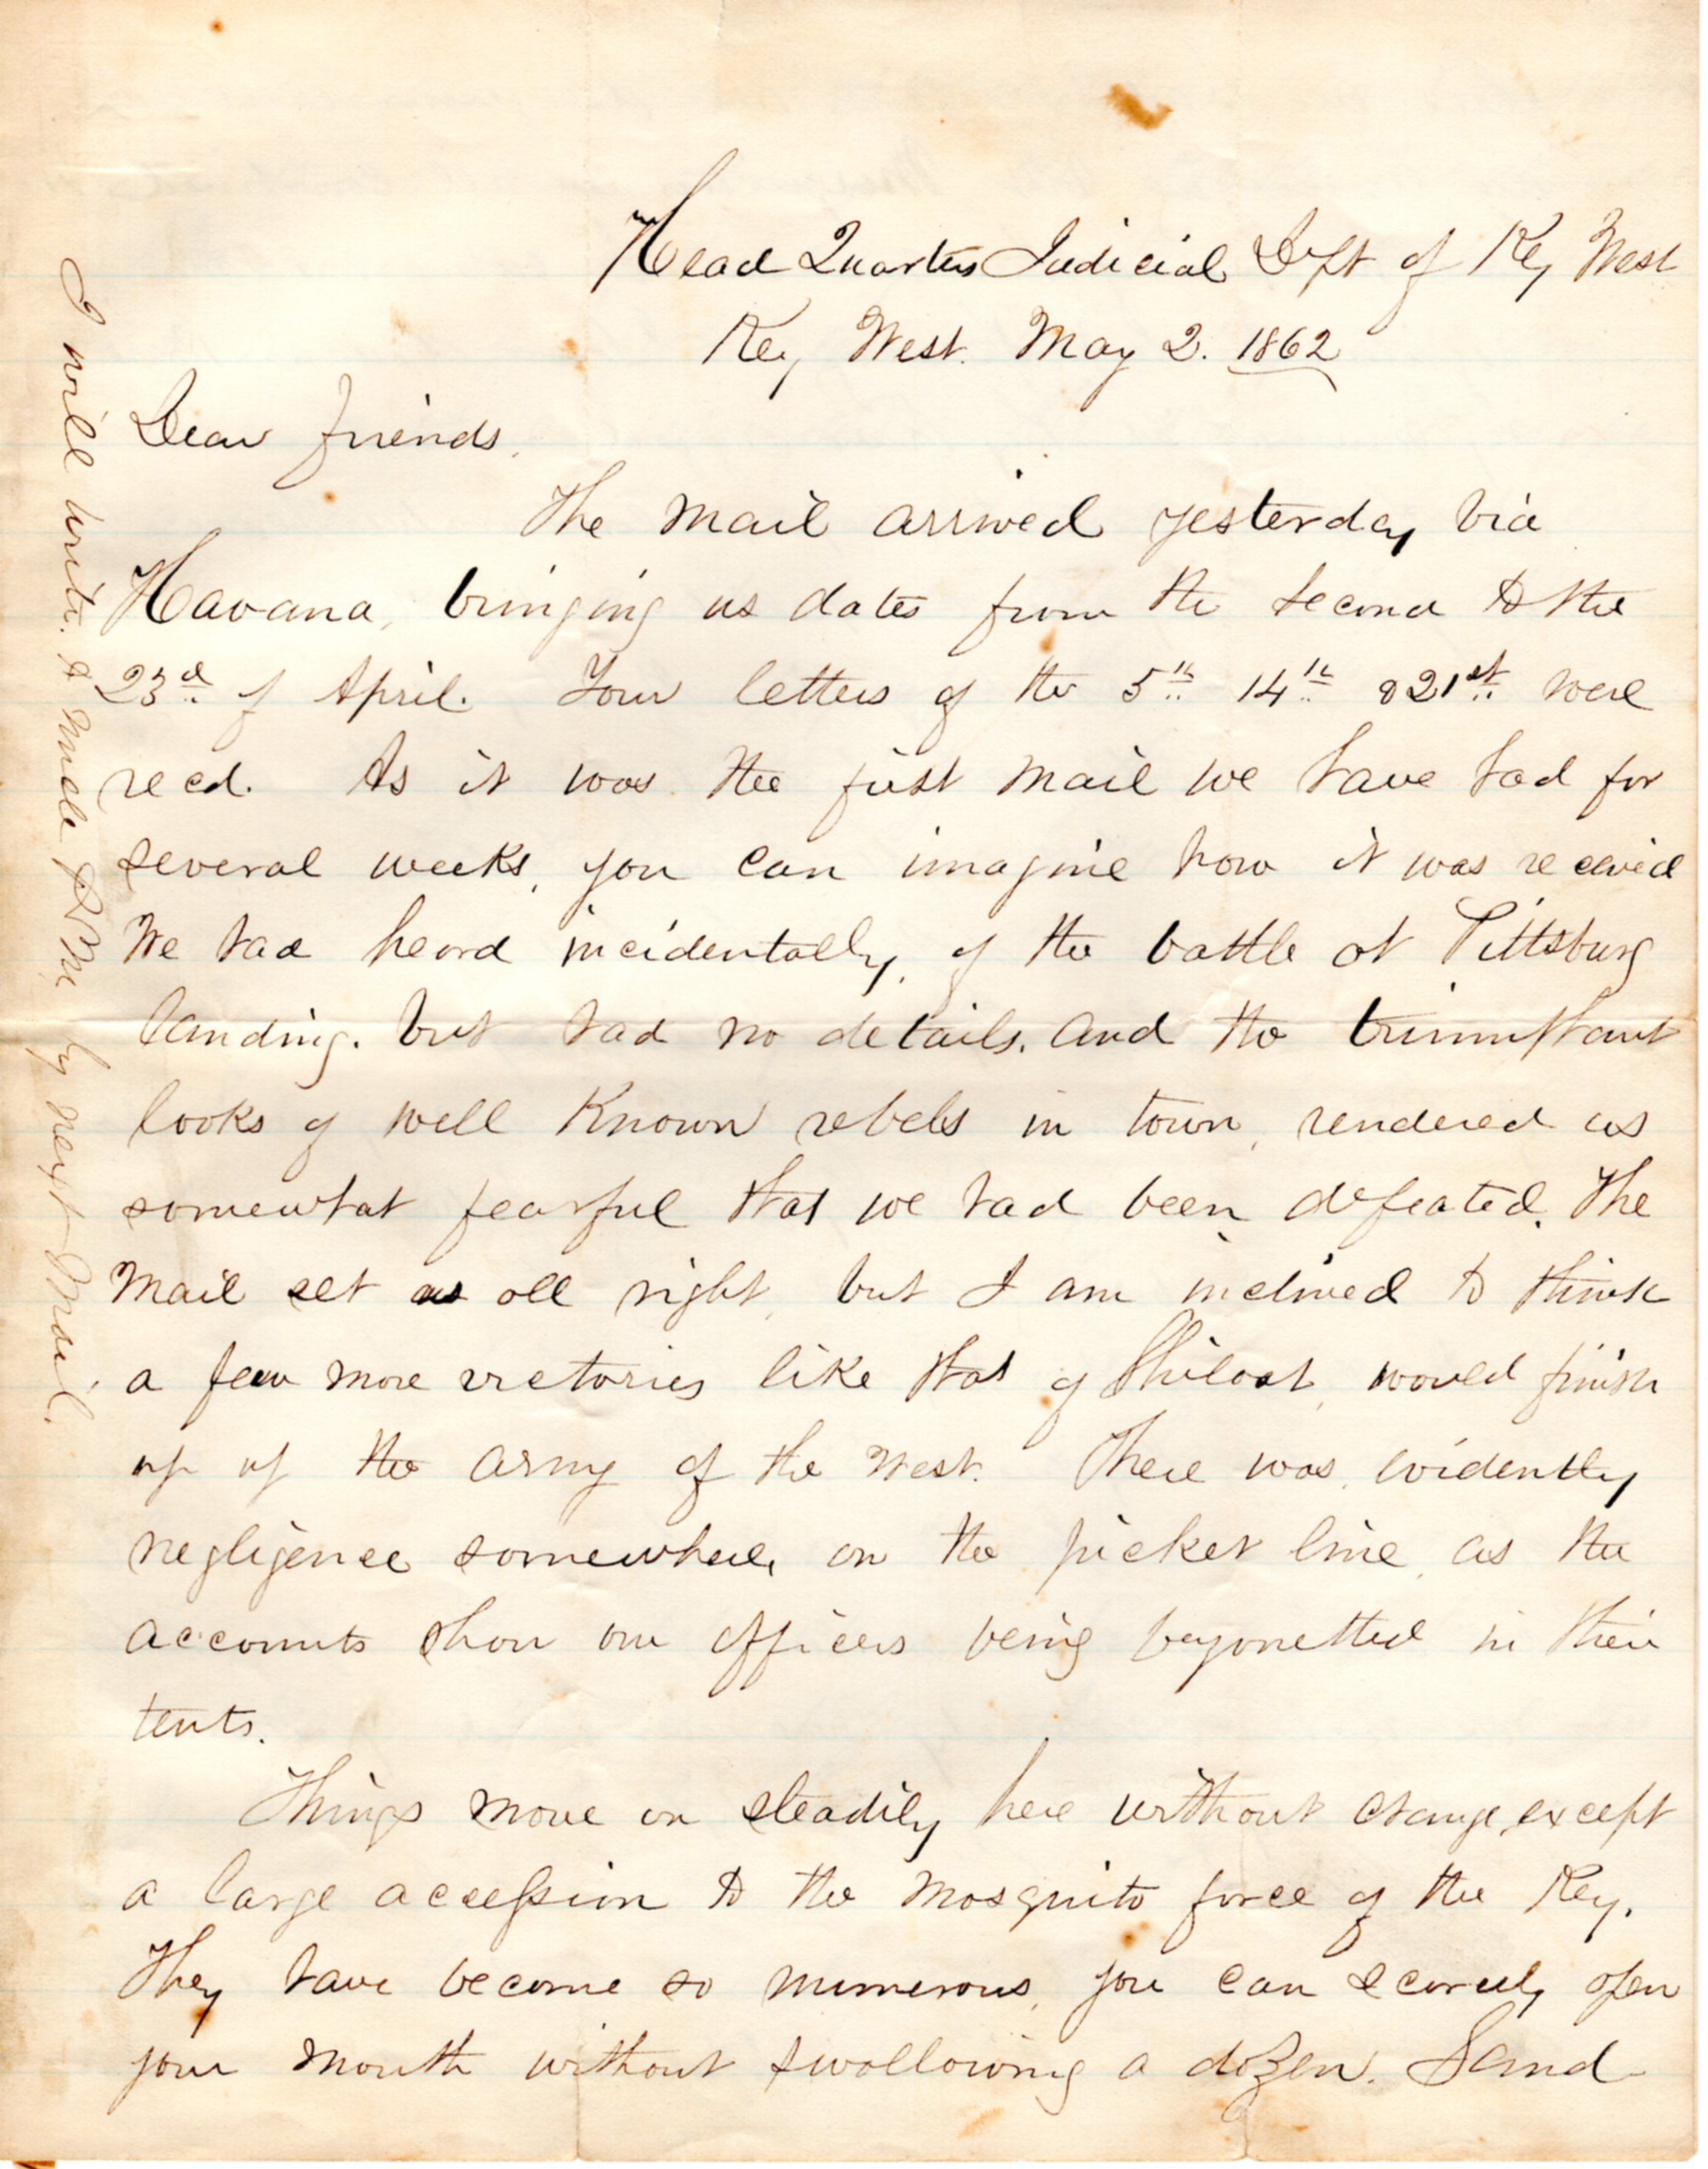 Head Quarters Judicial Dept of Key West
Key West. May 2. 1862
Dear friends,
The mail arrived yesterday via
Havana, bringing us dates from the second to the
23d of April. Your letters of the 5th 14th & 21st were
recd. As it was the first mail we have had for
several weeks, you can imagine how it was received
We had heard incidentally, of the battle at Pittsburg
landing. but had no details. and the triumphant
looks of well known rebels in town, rendered us
somewhat fearful that we had been defeated. The
mail set us all right, but I am inclined to think
a few more victories like that of Shiloah, would finish
up of the army of the West. There was, evidently
negligence somewhere, on the picket line, as the
accounts show our officers being bayonetted in their
tents.
Things move on steadily here without change, except
a large accession to the mosquito force of the Key.
They have become so numerous, you can scarcely open
your mouth without swallowing a dozen. Sand
I will write to Uncle by next mail.